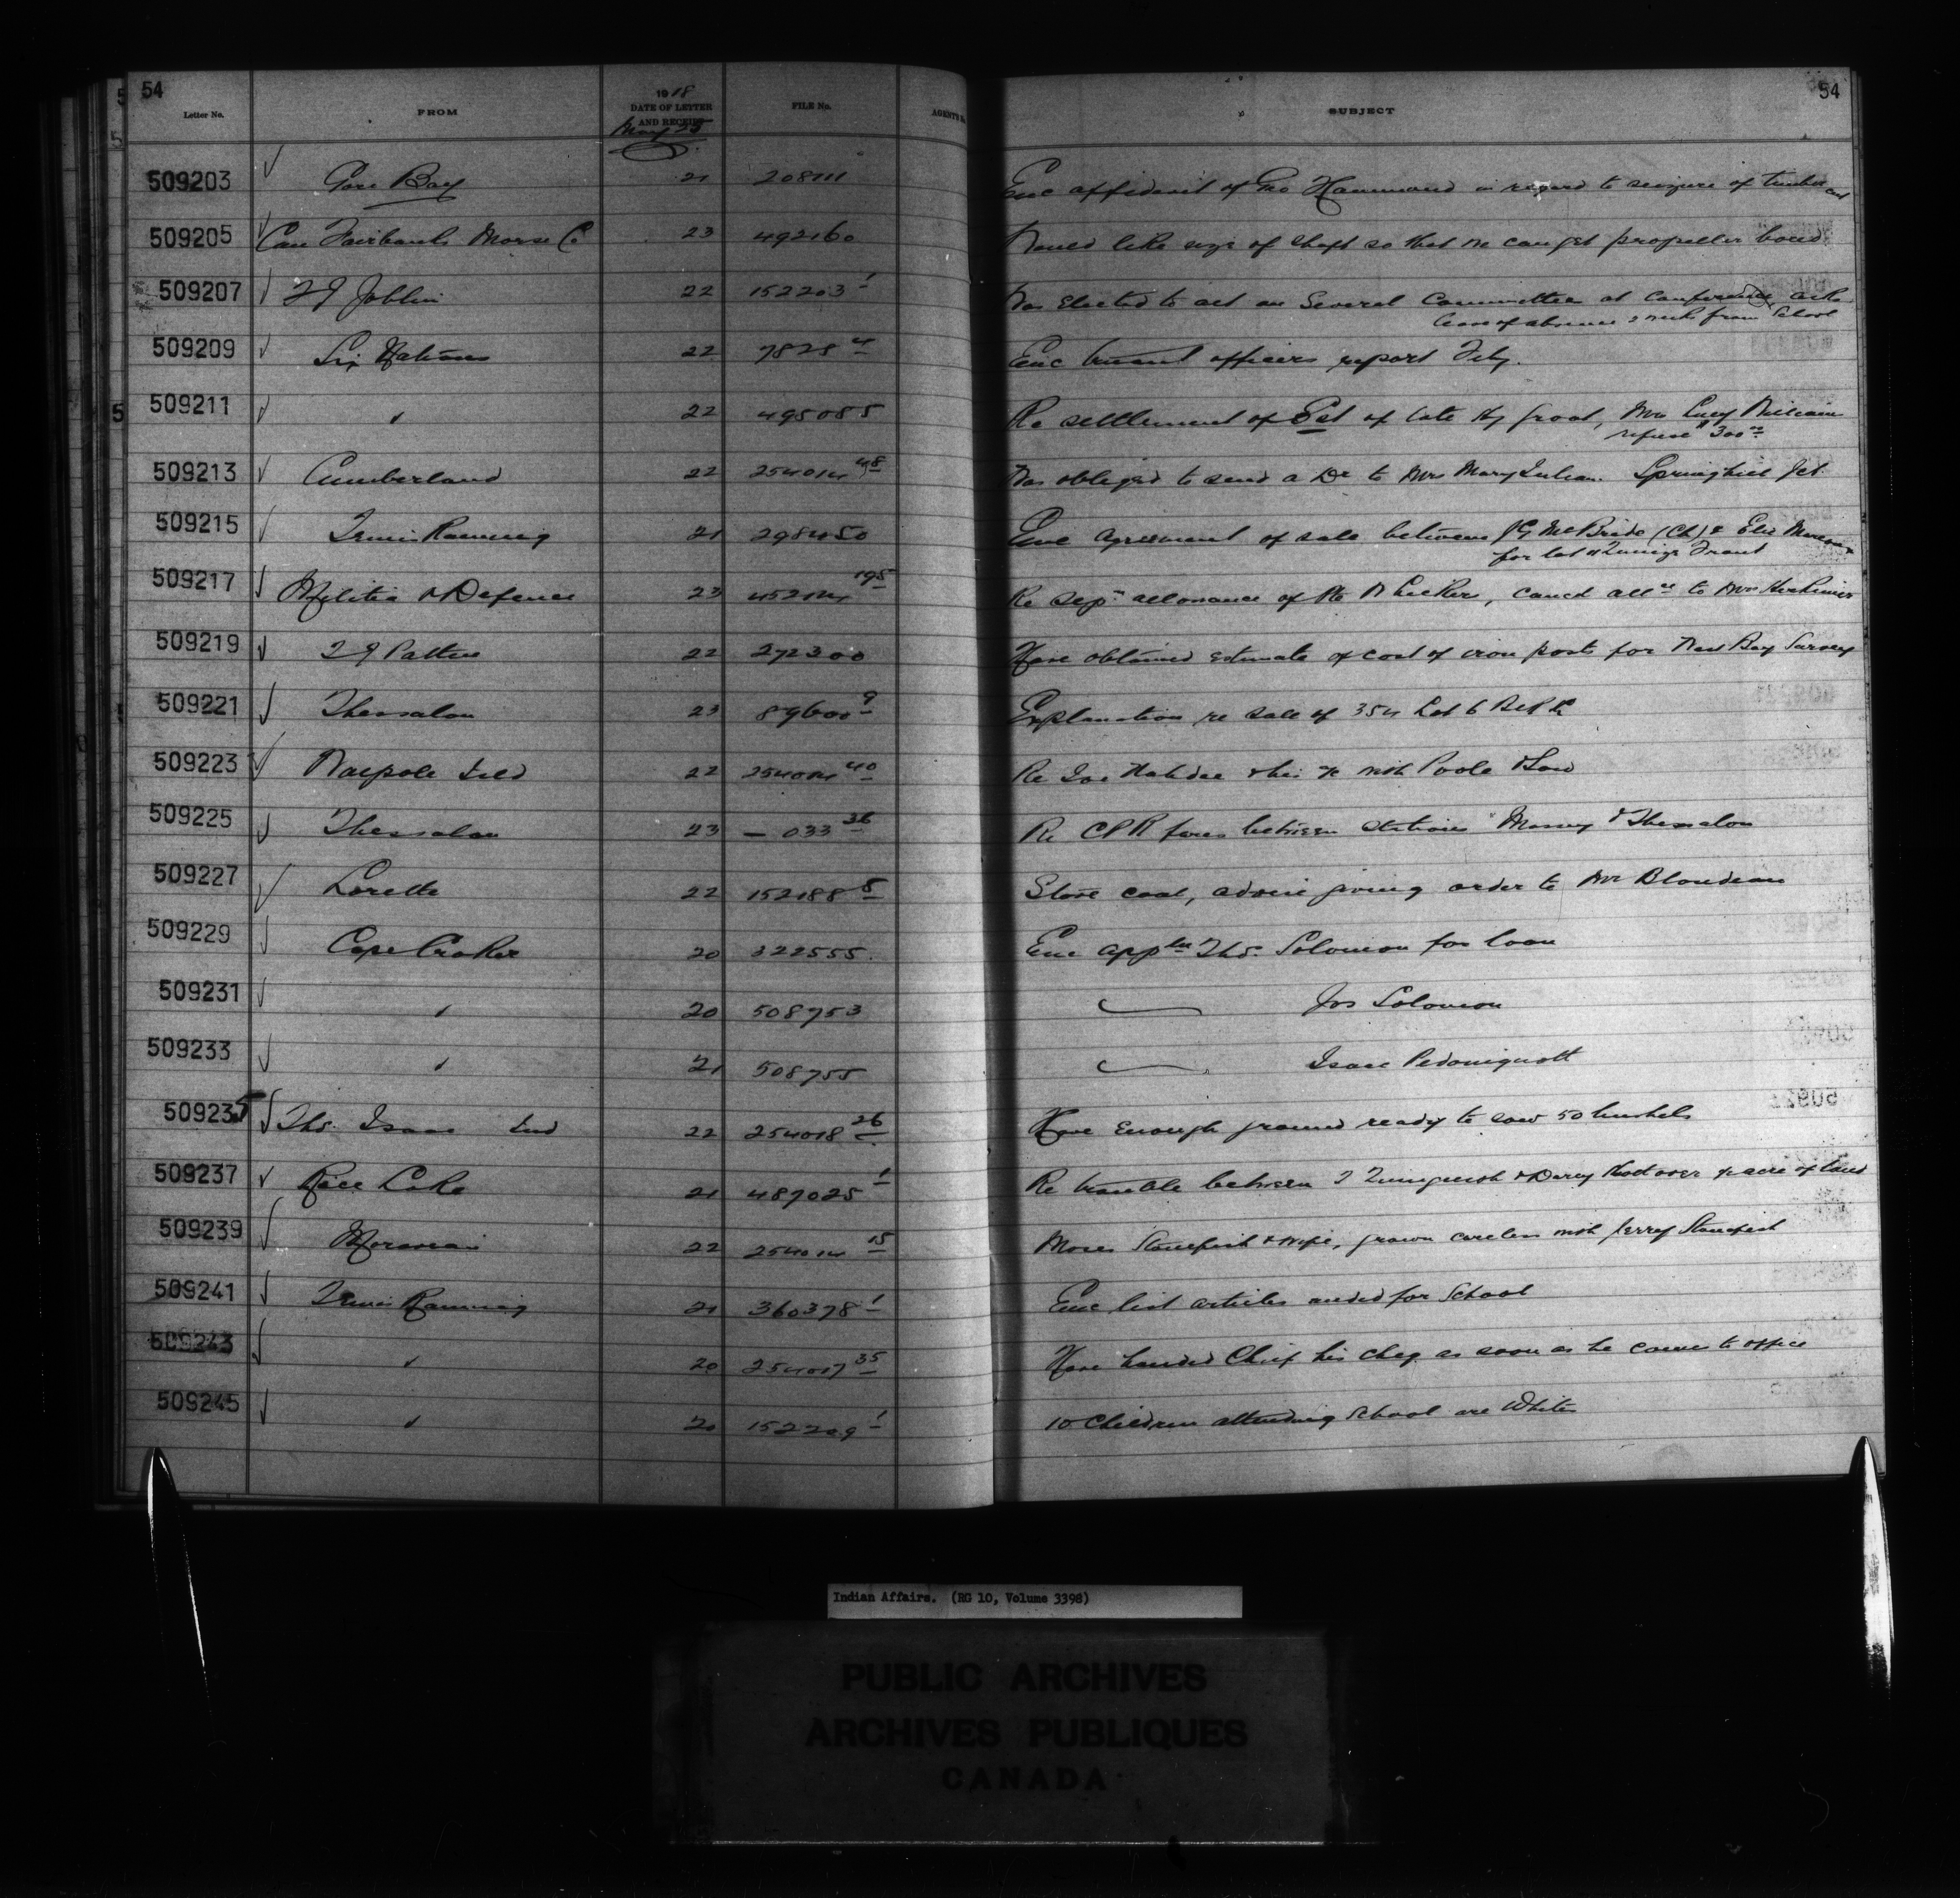 54
Letter No. FROM 1918 DATE OF LETTER AND RECEIPT FILE No. AGENT'S No. SUBJECT 54
May 25
509203 Gore Bay 21 208111 Enc affidavit of Geo Hammond in regard to seizure of timber cut
509205 Can Fairbanks Morse Co 23 492160 Would like size of shaft so that we can get propeller bored
509207 Joblin 22 152203 1 Was elected to act on Several Committees at Conference, asks
leave of absence 2 weeks from School
509209 Six Nations 22 7825 4 Enc truant officers report Feby.
509211 " 22 495085 Re settlement of Est of late Hy Groat, Mrs Lucy
refuse $300 00
509213 Cumberland 22 254014 48 Was obliged to send a Dr to Mrs Mary Springhill Jct
509215 21 298450 Enc Agreement of sale between McBride (Ch) &
for lot Front
509217 Militia & Defence 23 452124 195 Re sep'n allowance of Pte cancd all'ce to Mrs
509219 22 272300 Have obtained estimate of cost of iron posts for West Bay Survey
509221 Thessalon 23 89600 9 Explanation re sale of Lot 6
509223 Walpole Isld 22 254014 40 Re with Poole
509225 Thessalon 23 — 033 36 Re CPR fares between stations Massey & Thessalon
509227 Lorette 22 152188 5 Stove coal, advise giving order to Mr Blondeau
509229 Cape Croker 20 322555 Enc app'ln Thos. Solomon for loan
509231 " 20 508753 Jos Solomon
509233 " 21 508755 Isaac Pedoniquott
509235 Thos. Isaac Ind 22 254018 26 Have enough ground ready to sow 50 bushels
509237 Rice Lake 21 487025 1 Re trouble between & acre of land
509239 Moravian 22 254014 15 Moses Stonefish & wife, grown careless with Jerry Stonefish
509241 21 360378 1 Enc list articles needed for School
509243 " 20 254017 35 Have handed Chief his cheq as soon as he comes to office
509245 " 20 152209 1 10 Children attending School are White
Indian Affairs. (RG 10, Volume 3398)
PUBLIC ARCHIVES
ARCHIVES PUBLIQUES
CANADA